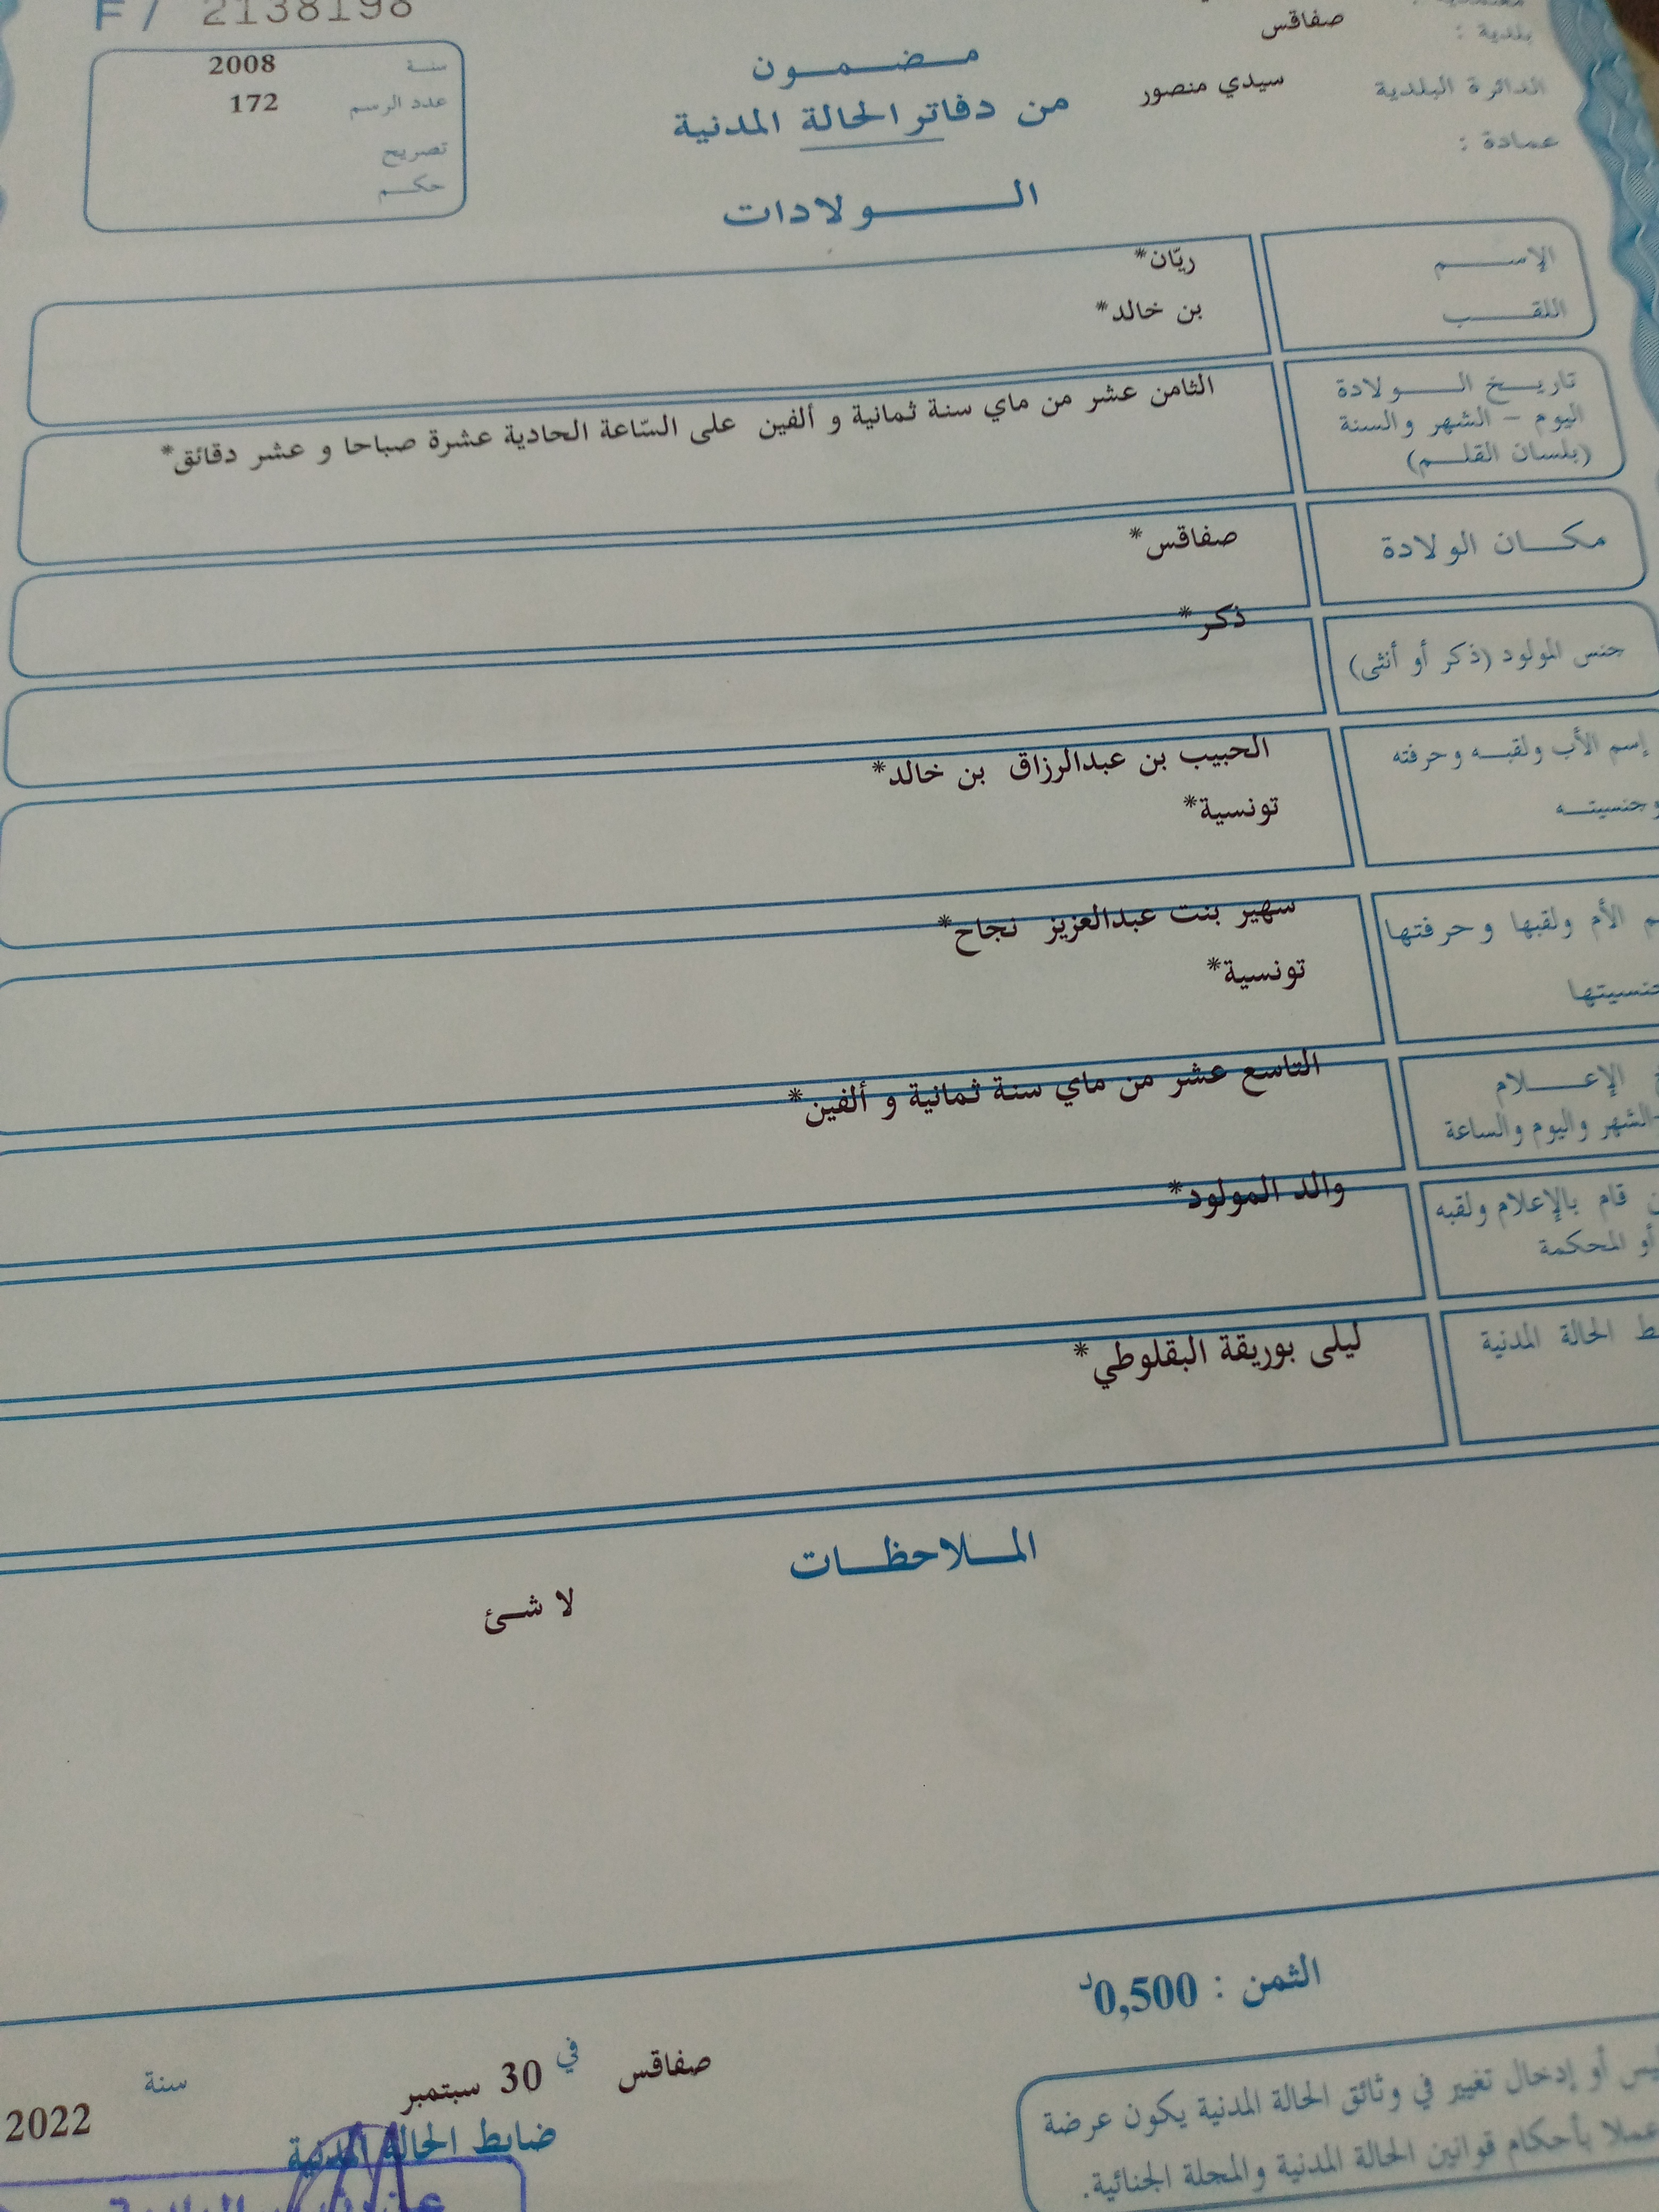 F / 2138198
بلدية : صفاقس
الدائرة البلدية سيدي منصور
عمادة :
مضمون
من دفاتر الحالة المدنية
الولادات
سنة 2008
عدد الرسم 172
تصريح
حكم
الإسم ريّان*
اللقب بن خالد*
تاريخ الولادة
اليوم - الشهر والسنة
(بلسان القلم)
الثامن عشر من ماي سنة ثمانية و ألفين على السّاعة الحادية عشرة صباحا و عشر دقائق*
مكان الولادة صفاقس*
جنس المولود (ذكر أو أنثى) ذكر*
إسم الأب ولقبه وحرفته الحبيب بن عبدالرزاق بن خالد*
وجنسيته تونسية*
الأم ولقبها وحرفتها سهير بنت عبدالعزيز نجاح*
تونسية*
الإعلام التاسع عشر من ماي سنة ثمانية و ألفين*
الشهر واليوم والساعة
قام بالإعلام ولقبه والد المولود*
أو المحكمة
الحالة المدنية ليلى بوريقة البقلوطي*
الملاحظات
لا شئ
الثمن : 0,500د
صفاقس في 30 سبتمبر سنة 2022
ضابط الحالة المدنية
أو إدخال تغيير في وثائق الحالة المدنية يكون عرضة
عملا بأحكام قوانين الحالة المدنية والمجلة الجنائية.